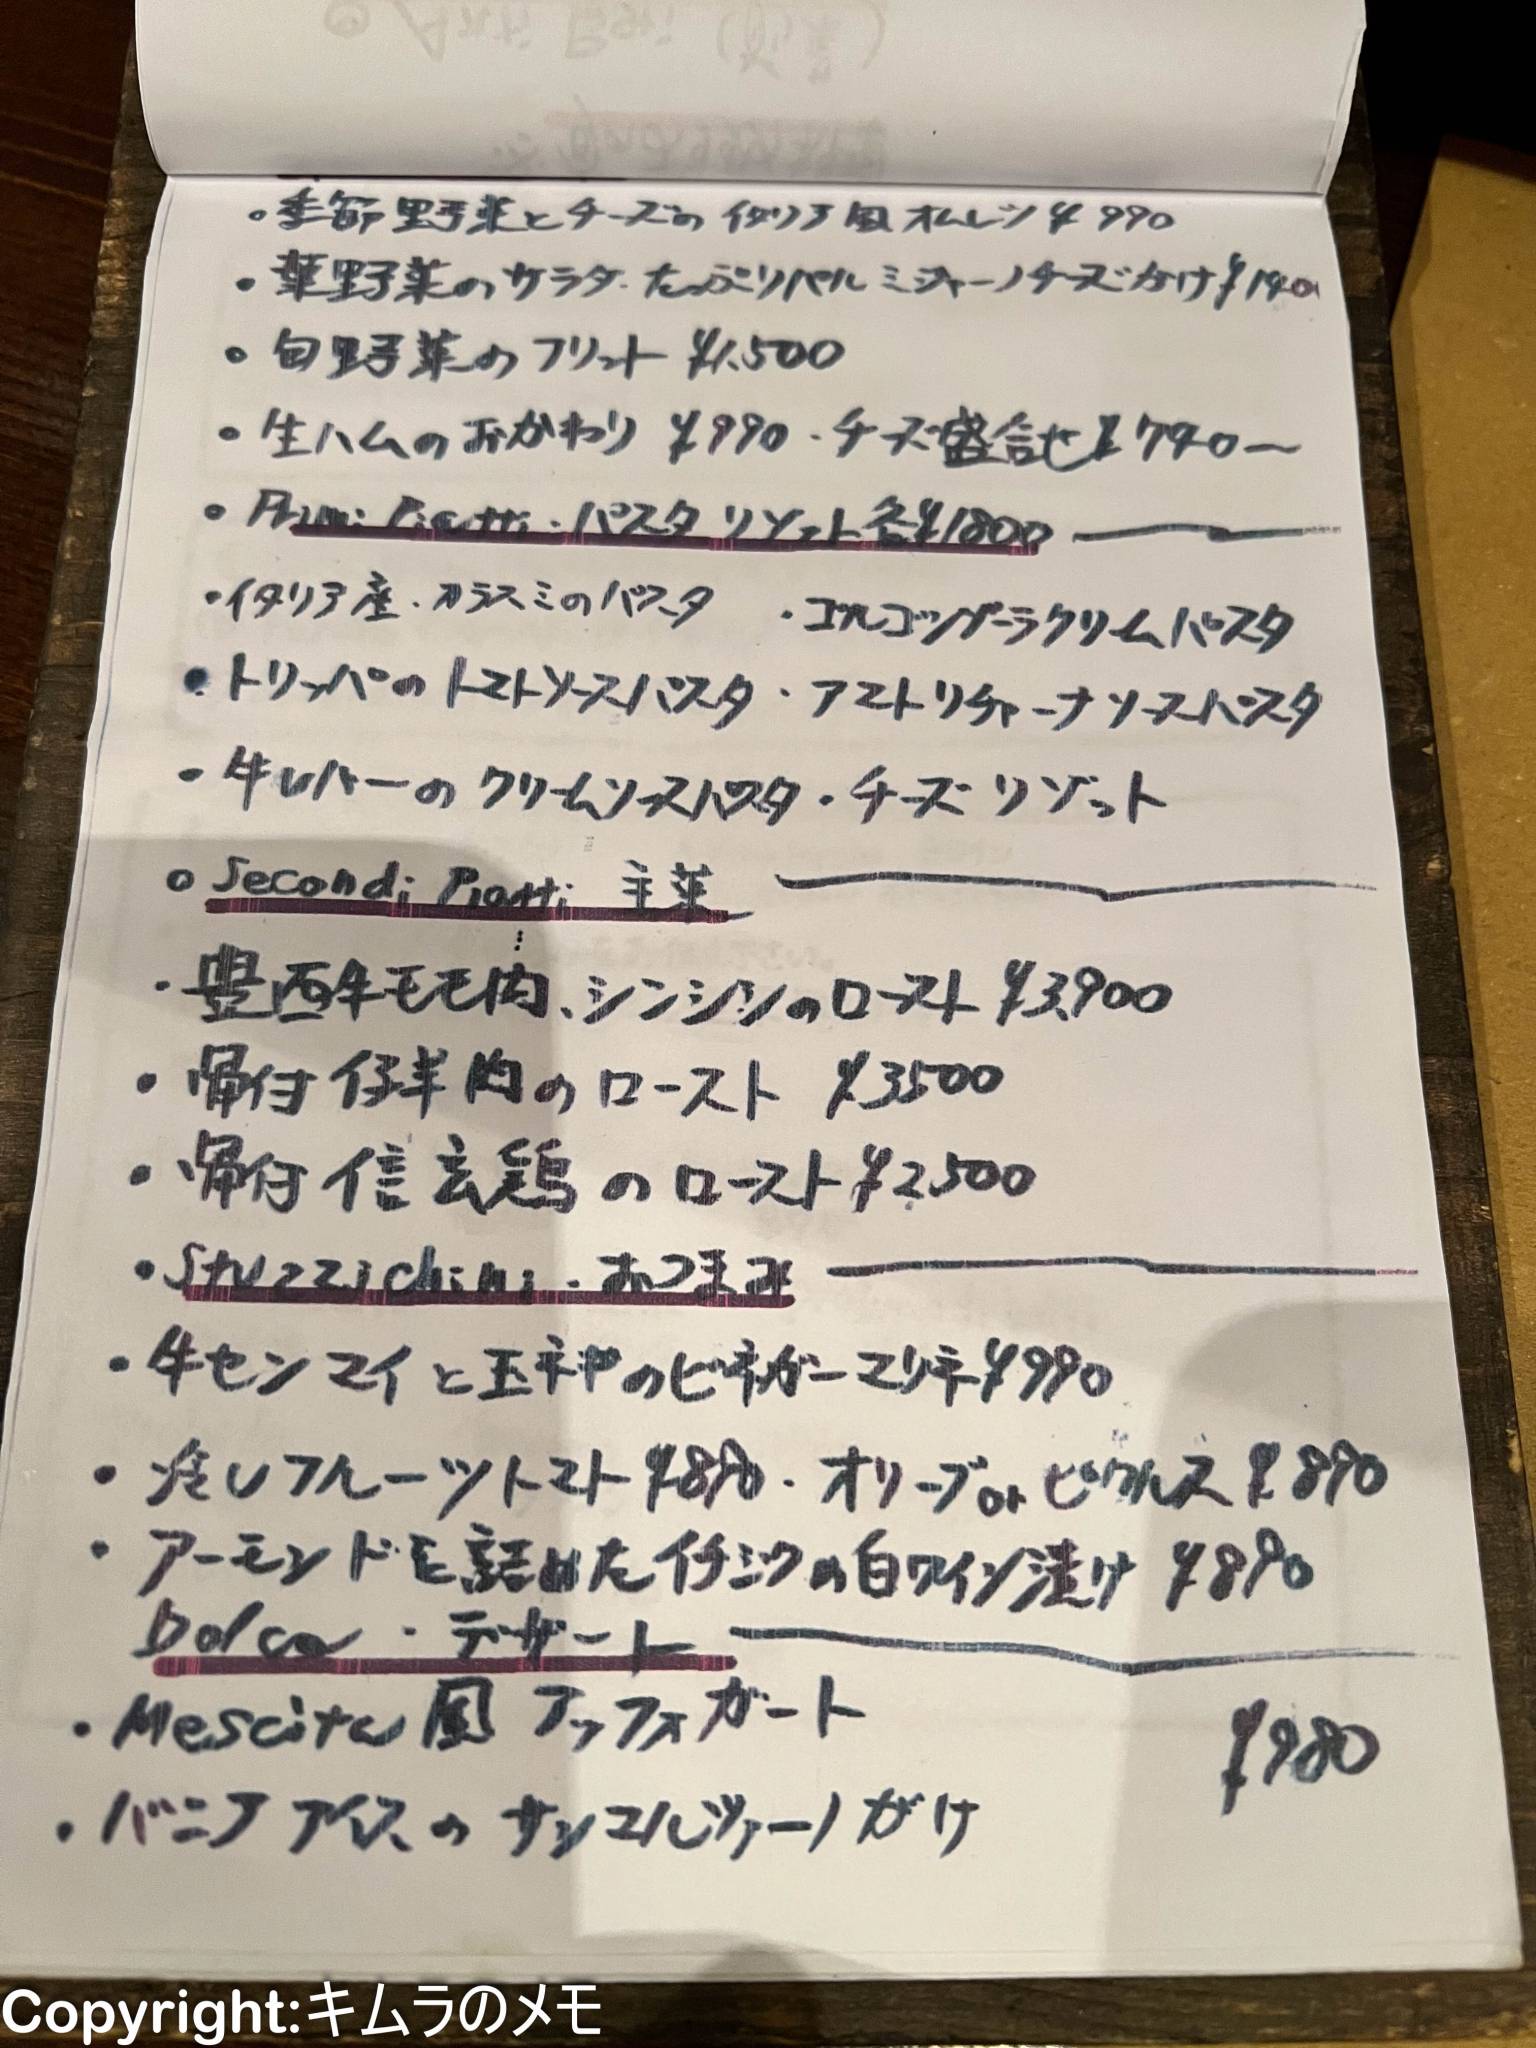 ・季節野菜とチーズのイタリア風オムレツ ¥990
・葉野菜のサラダ・たっぷりパルミジャーノチーズかけ ¥1400
・旬野菜のフリット ¥1,500
・生ハムのおかわり ¥990・チーズ盛合せ ¥740〜
○ Primi Piatti・パスタ リゾット 各¥1800
・イタリア産・カラスミのパスタ ・ゴルゴンゾーラクリームパスタ
・トリッパのトマトソースパスタ・アマトリチャーナソースパスタ
・牛レバーのクリームソースパスタ・チーズリゾット
○ Secondi Piatti 主菜
・豊西牛モモ肉、シンシンのロースト ¥3,900
・骨付仔羊肉のロースト ¥3500
・骨付信玄鶏のロースト ¥2,500
・Stuzzichini・おつまみ
・牛センマイと玉ネギのビネガーマリネ ¥990
・冷しフルーツトマト ¥890・オリーブ or ピクルス ¥890
・アーモンドを詰めたイチジクの白ワイン漬け ¥890
Dolce・デザート
・Mescita風 アッフォガート
¥980
・バニラアイスのサンマルツァーノがけ
Copyright:キムラのメモ